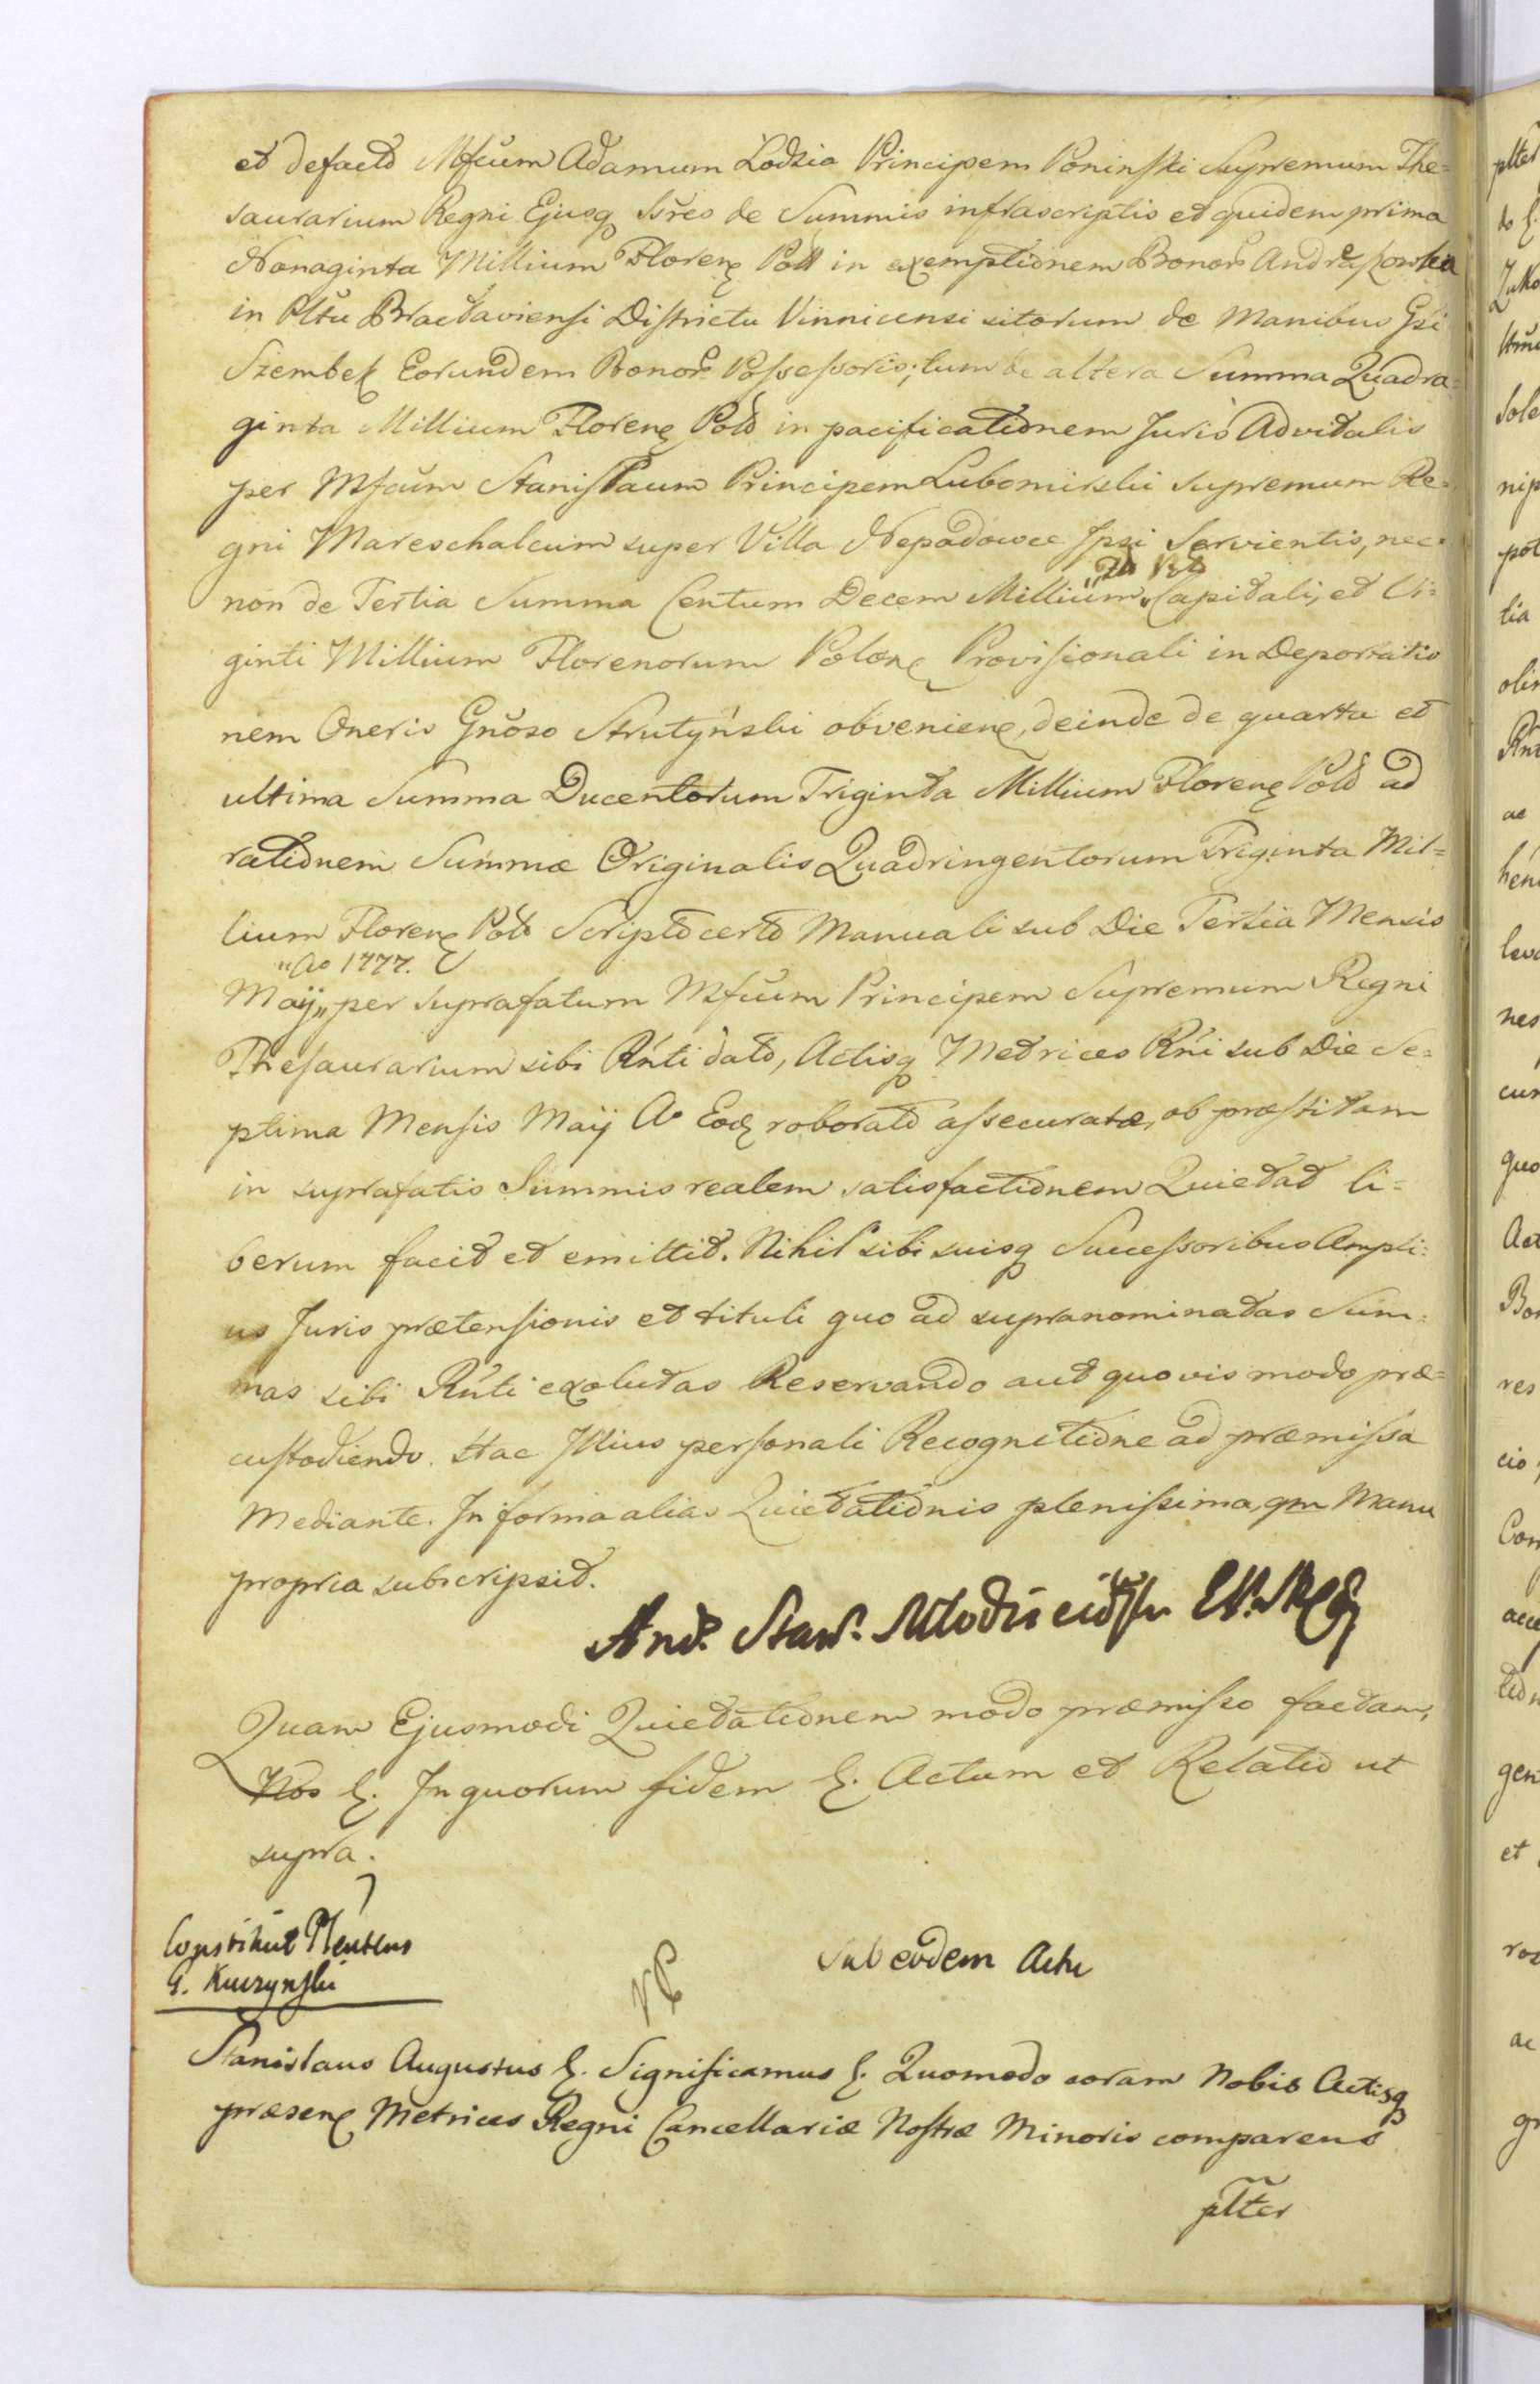 et defacto Mfcum Adamum Lodzia Principem Poninski Supremum The=
saurarium Regni Ejusq Ssres de Summis infrascriptis et quidem prima
Nonaginta Millium Floren Poll in exemptionem Bonor
in Pltu Braclaviensi Districtu Vinnicensi sitorum de Manibus Gsi
Szembek Eorundem Bonor Possessoris; tum de altera Summa Quadra=
ginta Millium Floren Pold in pacificationem Juris Advitalis
per Mfcum Stanislaum Principem Lubomirski Supremum Re=
gni Mareschalcum super Villa Nepadowce Ipsi Servientis, nec=
non de Tertia Summa Centum Decem Millium Capitali, et Vi=
ginti Millium Florenorum Polon Provisionali in Deportatio
nem Oneris Gnoso Strutyński obvenien, deinde de quarta et
ultima Summa Ducentorum Triginta Millium Floren Pold ad
rationem Summæ Originalis Quadringentorum Triginta Mil=
lium Floren Pold Scripto certo Manuali sub Die Tertia Mensis
"Ao 1777.
Maij" per suprafatum Mfcum Principem Supremum Regni
Thesaurarium sibi Rnti dato, Actisq Metrices Rni sub Die Se=
ptima Mensis Maij Ao Eod roborato assecuratæ, ob præstitam
in suprafatis Summis realem satisfactionem Quietat li=
berum facit et emittit. Nihil sibi suisq Successoribus Ampli=
us Juris prætensionis et tituli quo ad supranominatas Sum=
mas sibi Rnti exolutas Reservando aut quovis modo præ=
custodiendo. Hac Illius personali Recognitione ad præmissa
Mediante. In forma alias Quietationis plenissima, qm Manu
propria subscripsit.
And. Staw. Młodziejowski
Quam Ejusmodi Quietationem modo præmisso factam,
Nos &. In quorum fidem &. Actum et Relatio ut
supra.
Constituit Plenten
G. Kuczynski
Sub eodem Actu
Stanislaus Augustus &. Significamus &. Quomodo coram Nobis Actisq
præsen Metrices Regni Cancellariæ Nostræ Minoris comparens
plter